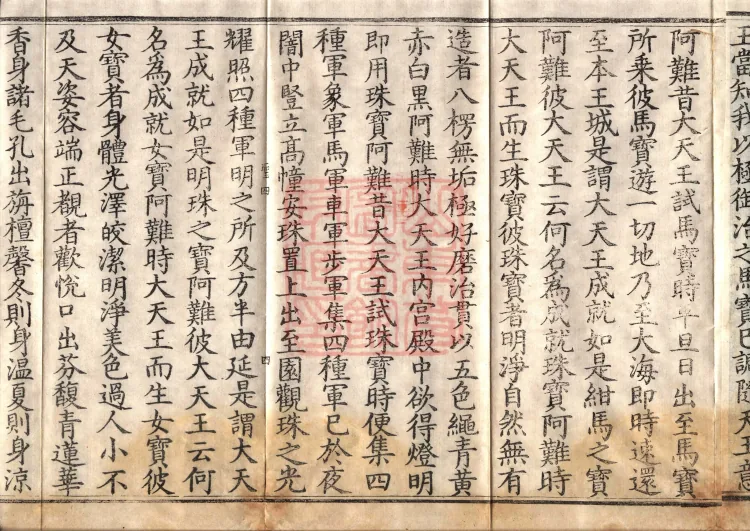 王當知我以極御治之馬寶已調隨天王意
阿難昔大天王試馬寶時平旦日出至馬寶
所乗彼馬寶遊一切地乃至大海即時速還
至本王城是謂大天王成就如是紺馬之寶
阿難彼大天王云何名為成就珠寶阿難時
大天王而生珠寶彼珠寶者明淨自然無有
造者八楞無垢極好磨治貫以五色繩青黃
赤白黑阿難時大天王内宮殿中欲得燈明
即用珠寶阿難昔大天王試珠寶時便集四
種軍象軍馬軍車軍步軍集四種軍已於夜
闇中豎立髙幢安珠置上出至園觀珠之光
四
耀照四種軍明之所及方半由延是謂大天
王成就如是明珠之寶阿難彼大天王云何
名為成就女寶阿難時大天王而生女寶彼
女寶者身體光澤皎潔明淨美色過人小不
及天姿容端正觀者歡悅口出芬馥青蓮華
香身諸毛孔出栴檀馨冬則身温夏則身涼